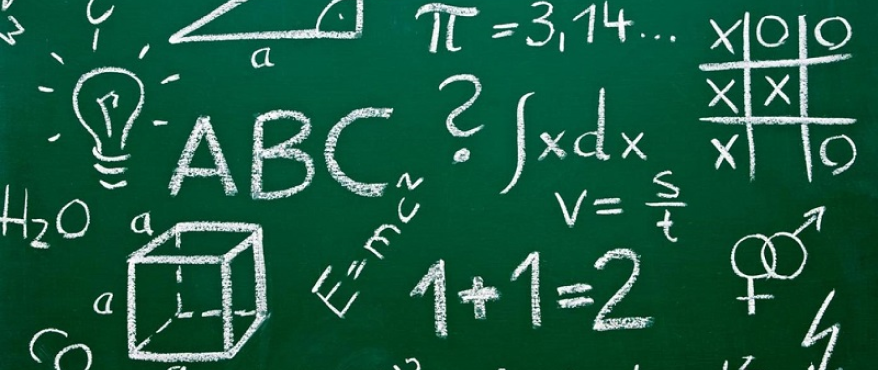 π = 3,14...
a
X O O
X X
X O
?
ABC
∫xdx
v = s/t
H₂O
a
E=mc²
1+1=2
a